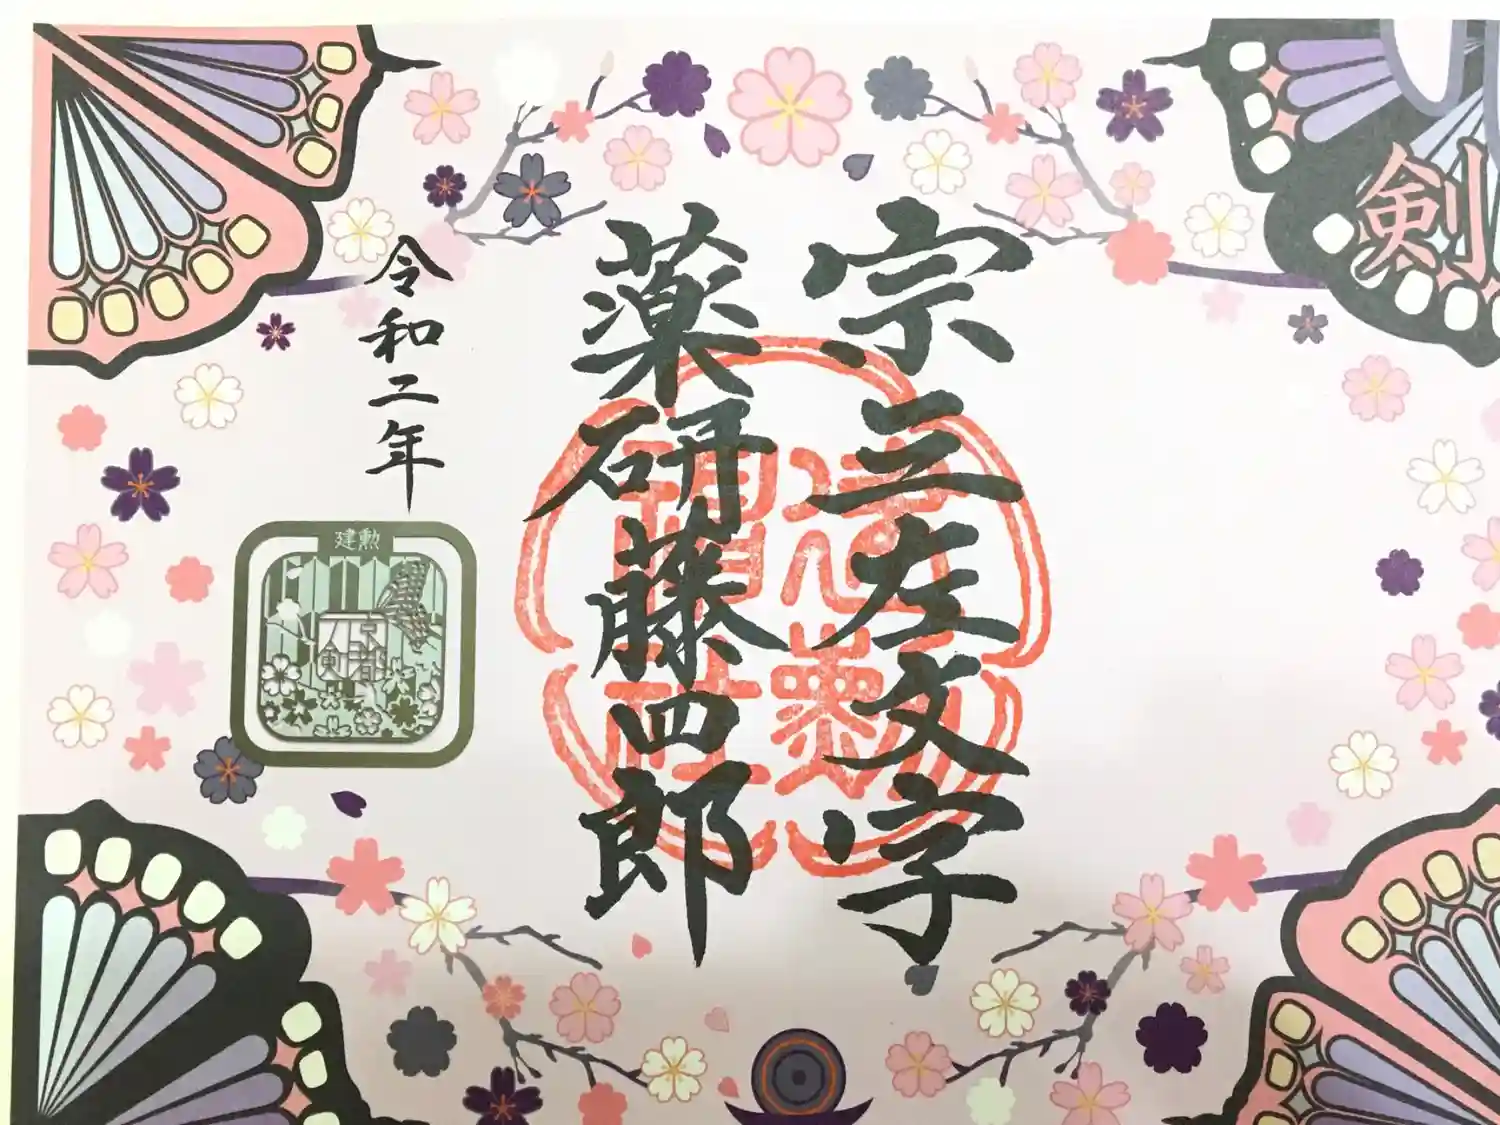 剣
宗三左文字
薬研藤四郎
令和二年
建勲
京都
刀剣
建勲
神社